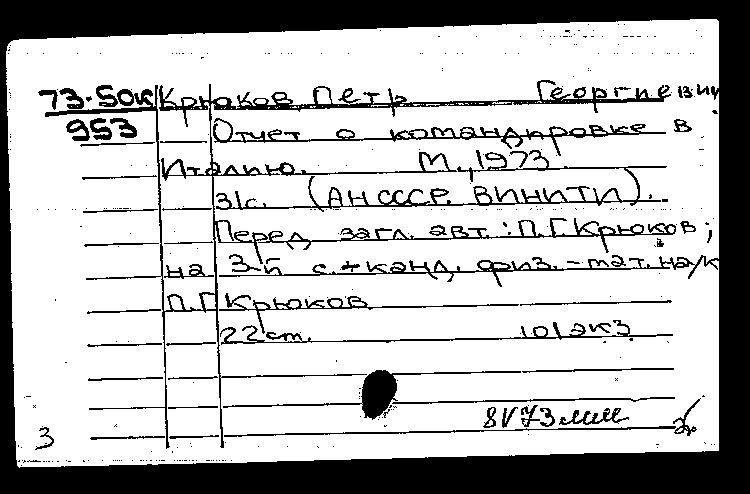 73-50к Крюков, Петр Георгиевич
953 Отчет о командировке в
Италию. М., 1973
31с. (АН СССР. ВИНИТИ).
Перед загл. авт.: П.Г. Крюков;
на 3-й с. + канд. физ.-мат. наук
П.Г. Крюков
22 см. 101 экз
8 V 73
3